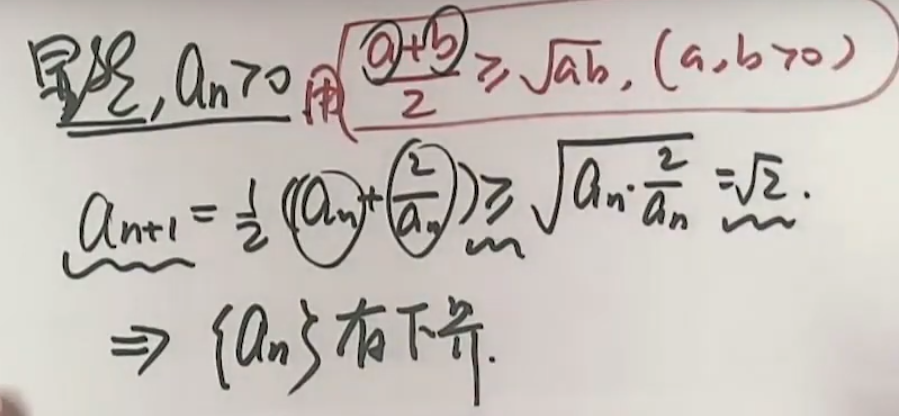 显然, aₙ>0 用 (a+b)/2 ≥ √ab, (a,b>0)
aₙ₊₁ = 1/2 (aₙ + 2/aₙ) ≥ √(aₙ·2/aₙ) = √2.
⇒ {aₙ} 有下界.